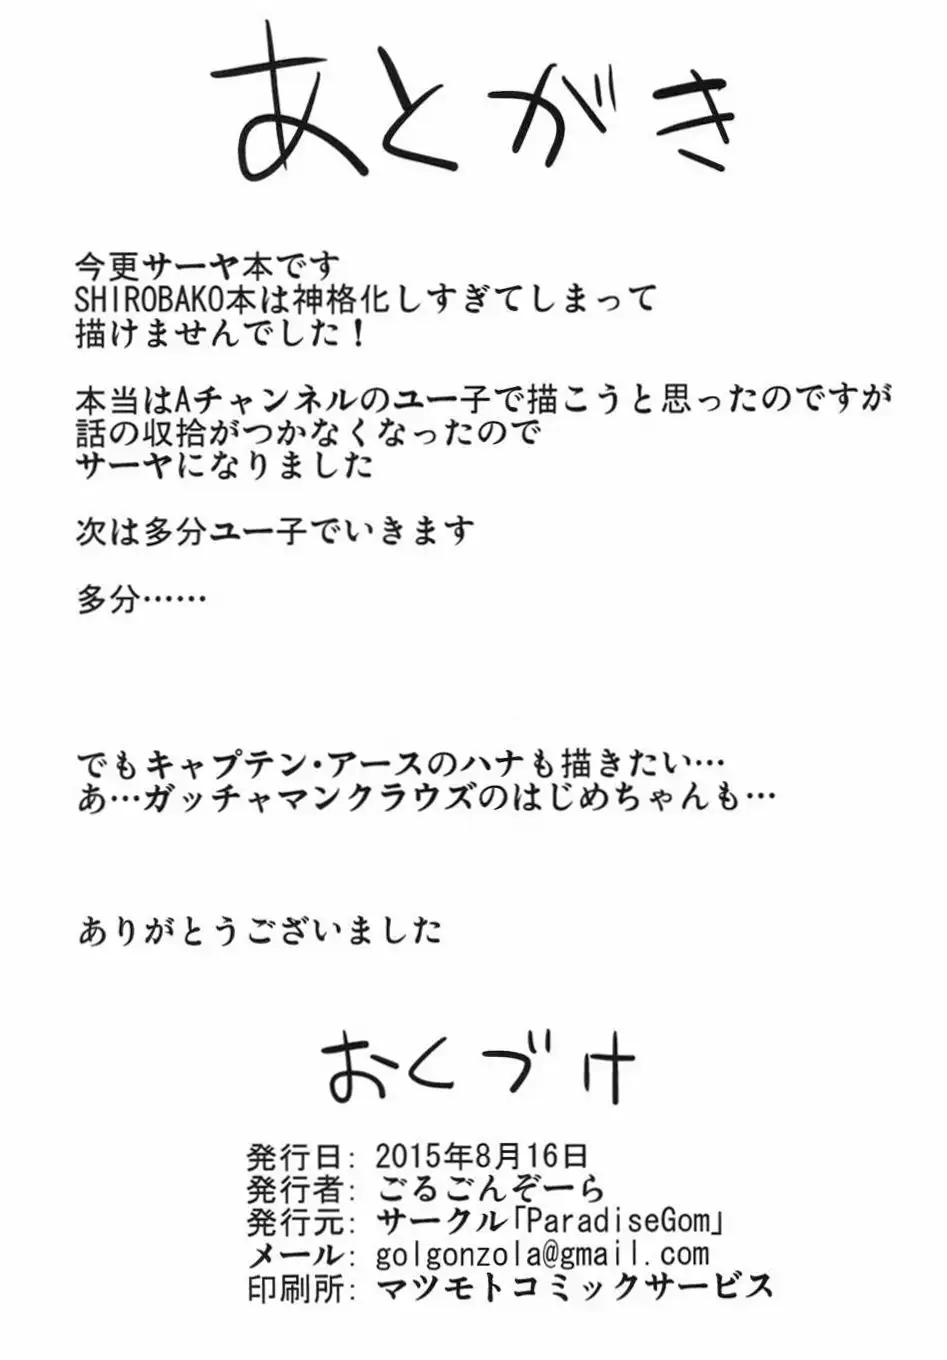 あとがき
今更サーヤ本です
SHIROBAKO本は神格化しすぎてしまって
描けませんでした！
本当はAチャンネルのユー子で描こうと思ったのですが
話の収拾がつかなくなったので
サーヤになりました
次は多分ユー子でいきます
多分……
でもキャプテン・アースのハナも描きたい…
あ…ガッチャマンクラウズのはじめちゃんも…
ありがとうございました
おくづけ
発行日: 2015年8月16日
発行者: ごるごんぞーら
発行元: サークル「ParadiseGom」
メール: golgonzola@gmail.com
印刷所: マツモトコミックサービス